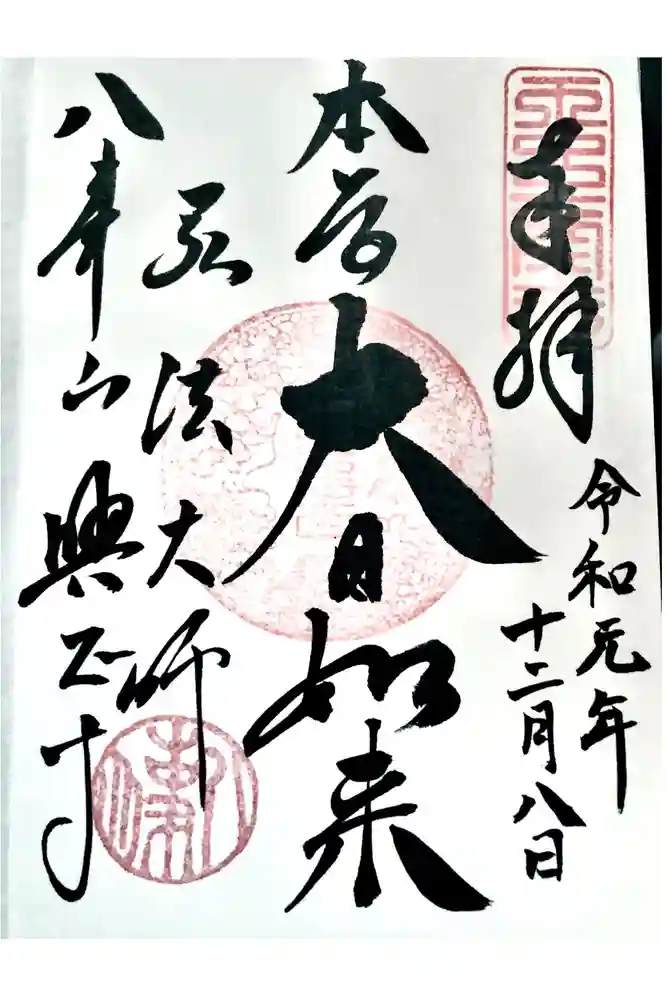 奉拝
令和元年
十二月八日
本尊
大日如来
弘法大師
八事山興正寺